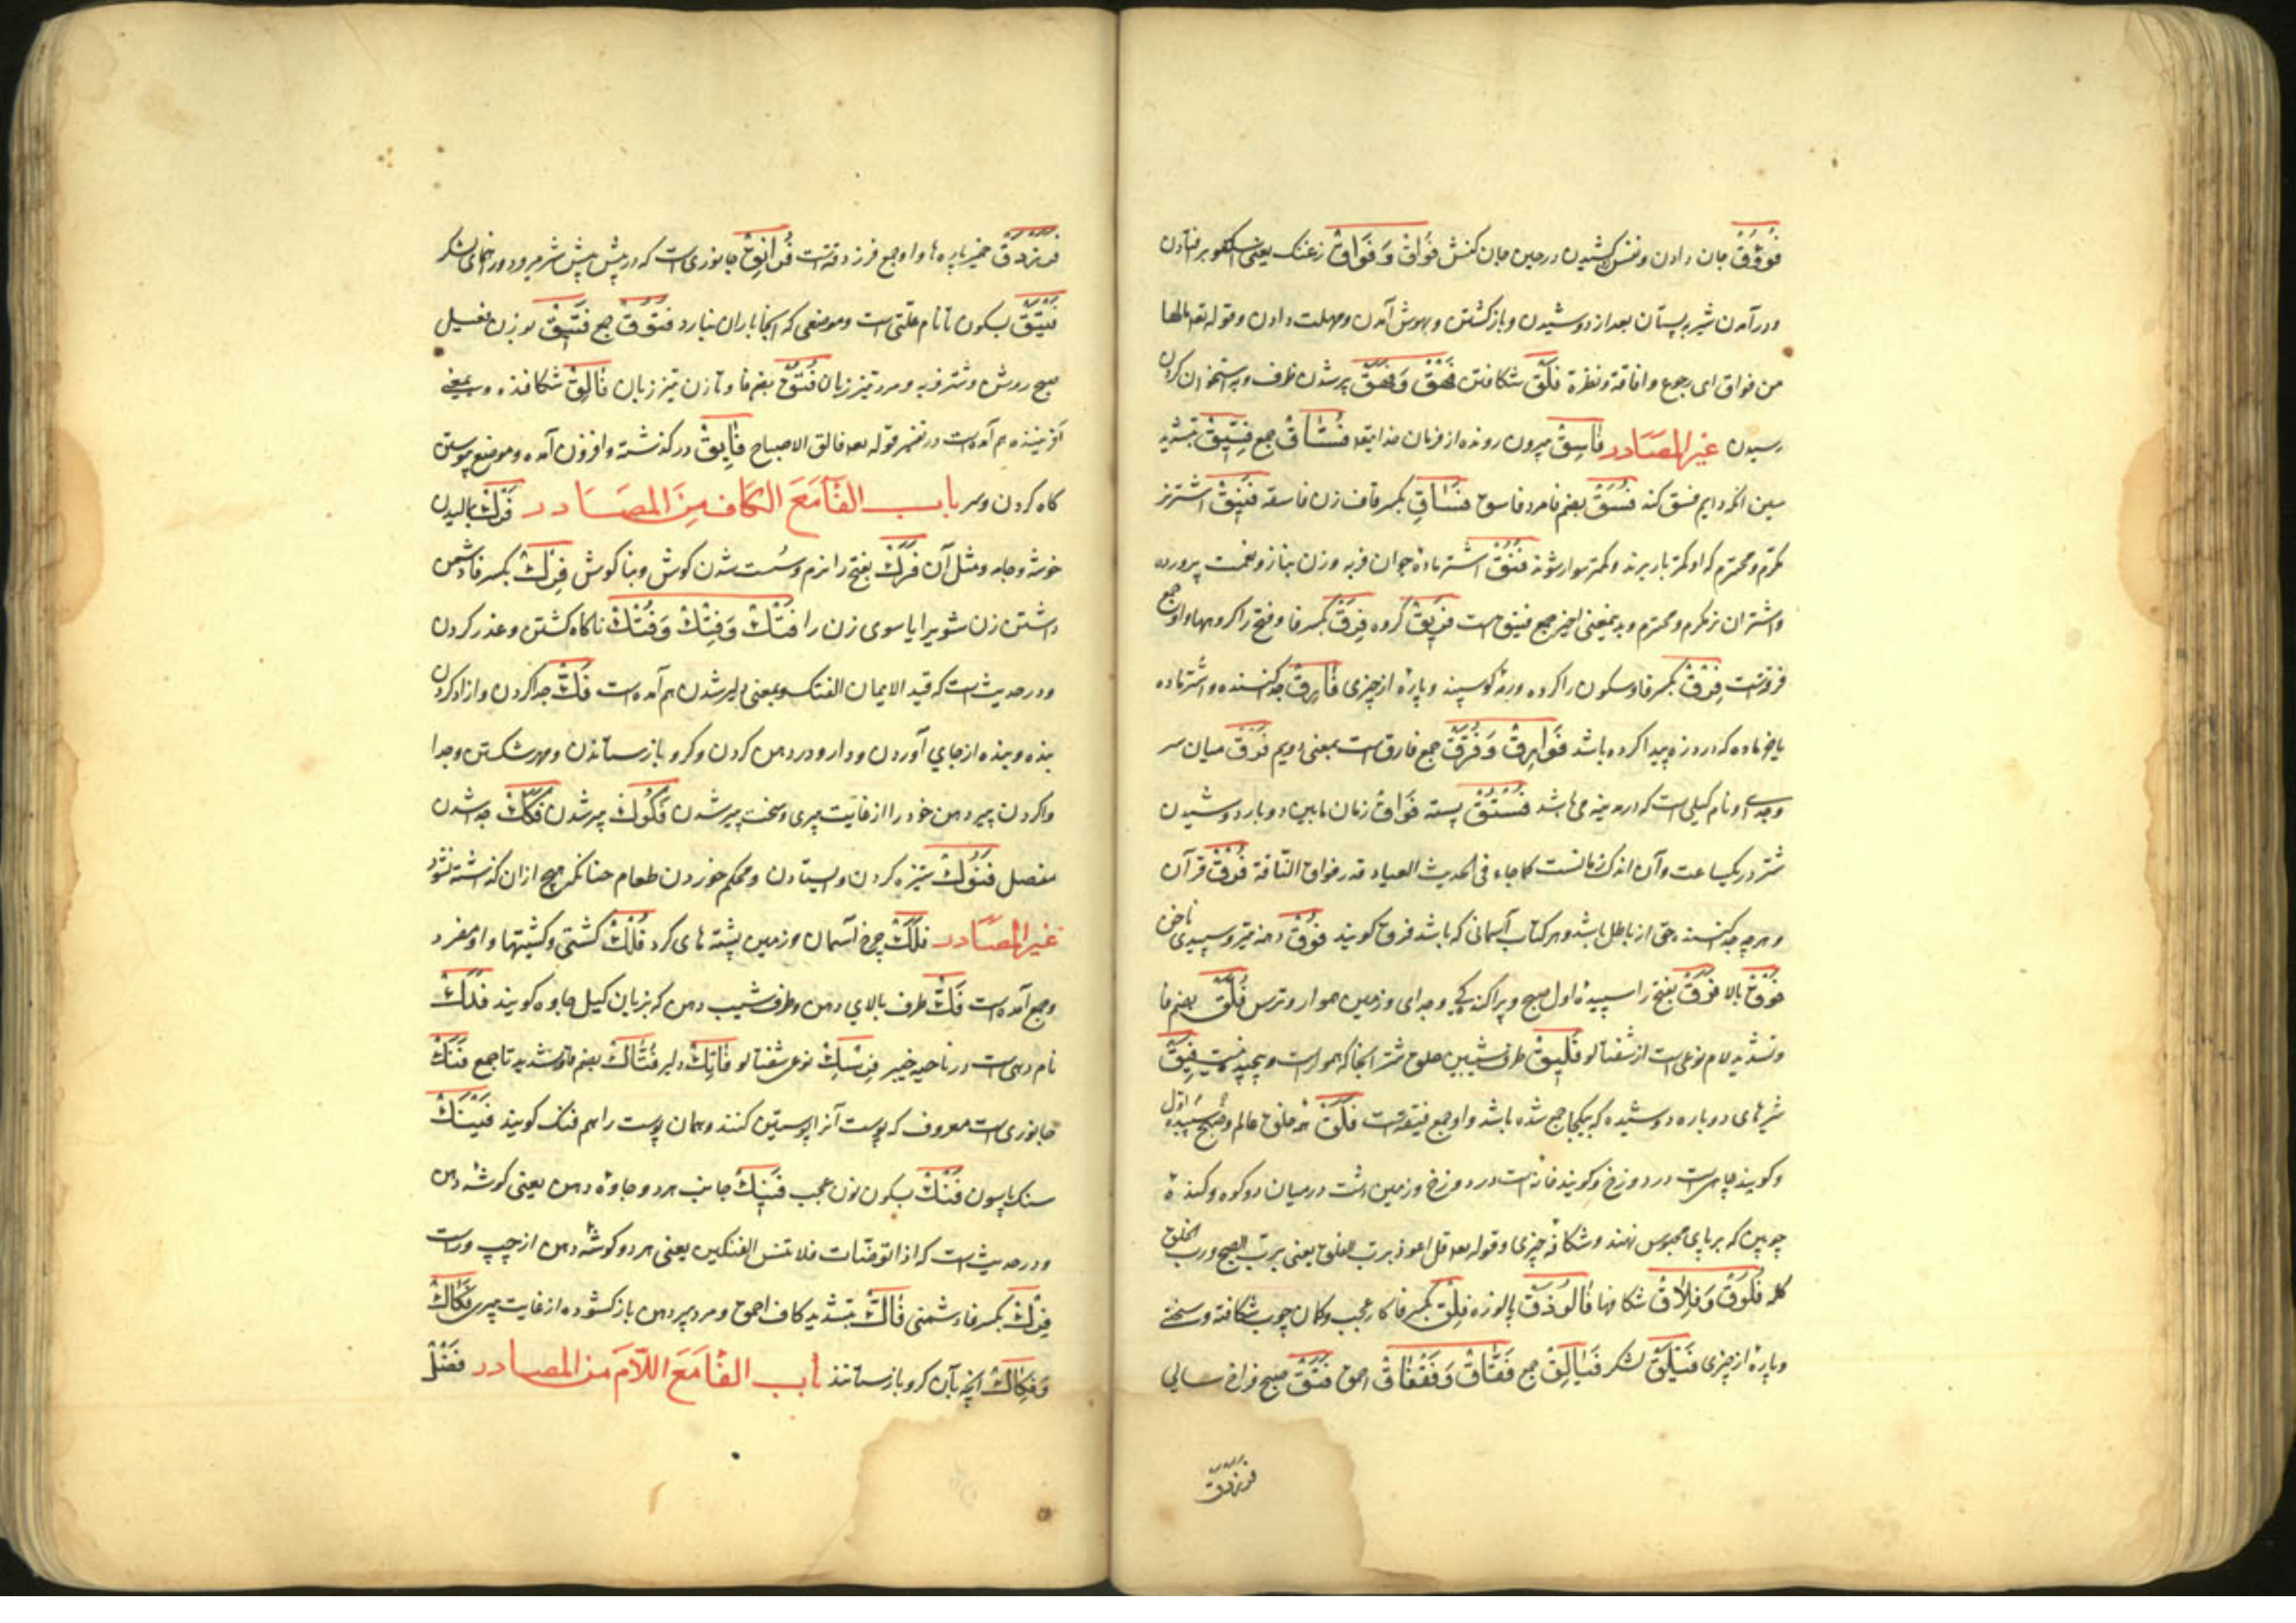 فُوُوْقٌ جان دادن ونفس کشیدن در حین جان کنش فُوَاقٌ وَ فَوَاقٌ زغنک یعنی بر فتادن
ودر آمدن شیر به پستان بعد از دوشیدن و بازگشتن و بهوش آمدن و مهلت دادن وقوله تعه مالها
من فواق ای رجوع وافاقة ونظرة فَلْقٌ شکافتن فَهْقٌ وَ فَهَقٌ پر شدن ظرف وبه استخوان کردن
رسیدن غیر المصَادر فَاسِقٌ بیرون رونده از فرمان خدایتعه فُسَّاقٌ جمع فِسِّیقٌ بتشدید
سین انکه دایم فسق کند فُسَقٌ بضم فا مرد فاسق فَسَاقِ بکسر قاف زن فاسقه فَنِیقٌ اشتر نر
مکرّم ومحترم که او کمتر بار برند وکمتر سوار شوند فُنُقٌ اشتر ماده جوان فربه وزن بناز ونعمت پرورده
واشتران نر مکرم ومحترم وبدینمعنی اخیر جمع فنیق است فَرِیقٌ گروه فِرَقٌ بکسر فا وفتح را گروهها واو جمع
فرقه است فِرْقٌ بکسر فا وسکون را گروه ورمهٔ گوسپند وپارهٔ از چیزی فَارِقٌ جدا کننده واشتر ماده
یا خر ماده که درد زه پیدا کرده باشد فَوَارِقٌ وَ فُرَّقٌ جمع فارق است بمعنی دویم فَرْقٌ میان سر
وجدایی ونام کیلی است که در مدینه می باشد فُسْتُقٌ پسته فُوَاقٌ زمان مابین دو بار دوشیدن
شتر در یکساعت وآن اندک زمانست کما جاء فی الحدیث العیادة قدر فواق النّاقة فُرْقٌ قرآن
وهرچه جدا کننده حق از باطل باشد وهر کتاب آسمانی که باشد فرق گویند فُوْقٌ دهنهٔ تیر وسپیدی ناخن
فَوْقٌ بالا فَرَقٌ بفتح را سپیدهٔ اول صبح وپراکندگی وجدای وزمین هموار وترس فُلَّقٌ بضم فا
وتشدید لام نوعی است از شفتالو فَلِیقٌ طرف شیبین حلق شتر آنجا که هموار است فِیَقٌ
شیرهای دوباره دوشیده که بیکجا جمع شده باشد واو جمع فیقه است فَلَقٌ همه خلق عالم وصبح وسپیدهٔ اوّل
وگویند چاهی است در دوزخ وگویند خانه است در دوزخ وزمین پست در میان دو کوه وکندهٔ
چوبین که بر پای محبوس نهند وشکاف چیزی وقوله تعه قل اعوذ برب الفلق یعنی بربّ الصبح وربّ الخلق
کله فُلُوْقٌ وَ فِلَاقٌ شکافها فَالُوْذَقٌ پالوزه فِلْقٌ بکسر فا کار عجب وکمان چوب شکافته وسختی
وپارهٔ از چیزی فَیْلَقٌ لشکر فَیَالِقٌ جمع فَقَّاقٌ وَ فَقْفَاقٌ احمق فَتَقٌ صبح فراخ سالی
فرزدق
فَرَزْدَقٌ خمیر پاره ها واو جمع فرزدقه است فُرَانِقٌ جانوری است که در پیش پیش شیر میرود ورهنمای لشکر
فَتْقٌ بسکون تا نام علتی است وموضعی که آنجا باران نبارد فُتُوْقٌ جمع فَتِیْقٌ بوزن فعیل
صبح روشن وشتر فربه ومرد تیز زبان فُتُقٌ بضم فا وتا زن تیز زبان فَالِقٌ شکافنده وبمعنی
آفریننده هم آمده است در تفسیر قوله تعه فالق الاصباح فَایِقٌ در گذشته وافزون آمده وموضع پیوستن
گاه گردن وسر باب الفَا مَعَ الکَاف مِنَ المصَادر فَرْکٌ بمالیدن
خوشه وجامه ومثل آن فَرَکٌ بفتح را نرم وسُست شدن گوش وبناگوش فِرْکٌ بکسر فا دشمن
داشتن زن شویرا یا شوی زن را فَتْکٌ وَ فِتْکٌ وَ فُتْکٌ ناگاه کشتن وغدر کردن
ودر حدیث است که قید الایمان الفتک وبمعنی دلیر شدن هم آمده است فَکٌّ جدا کردن وازاد کردن
بنده وبنده از جای آوردن ودارو در دهن کردن وگرو باز ستاندن ومهر شکستن وجدا
واکردن پیر دهن خود را از غایت پیری وسخت پیر شدن فُکُوکٌ پیر شدن فَکَکٌ جدا شدن
مفصل فُنُوکٌ ستیزه کردن وایستادن ومحکم خوردن طعام چنانکه هیچ ازان گذاشته نشود
غیر المصَادر فَلَکٌ چرخ آسمان وزمین پشته های گرد فُلْکٌ کشتی وکشتیها واو مفرد
وجمع آمده است فَکٌّ طرف بالای دهن وطرف شیب دهن که بزبان گیل جاوه گویند فَدَکٌ
نام دهی است در ناحیه خیبر فِرْسِکٌ نوعی شفتالو فَاتِکٌ دلیر فُتَّاکٌ بضم فا وتشدید تا جمع فَنَکٌ
جانوری است معروف که پوست آنرا پوستین کنند وهمان پوست را هم فنک گویند فَیْنَکٌ
سنگ پاسون فَنْکٌ بسکون نون عجب فَنِیْکٌ جانب هر دو جاوهٔ دهن یعنی گوشهٔ دهن
ودر حدیث است که اذا توضّات فلا تنس الفنکین یعنی هر دو گوشهٔ دهن از چپ وراست
فِرْکٌ بکسر فا دشمنی فَاکٌّ بتشدید کاف احمق ومرد پیر دهن باز گشوده از غایت پیری فَکَاکٌ
وَ فِکَاکٌ آنچه بآن گرو باز ستانند باب الفَا مَعَ اللّامَ مِنَ المصادر فَضْلٌ